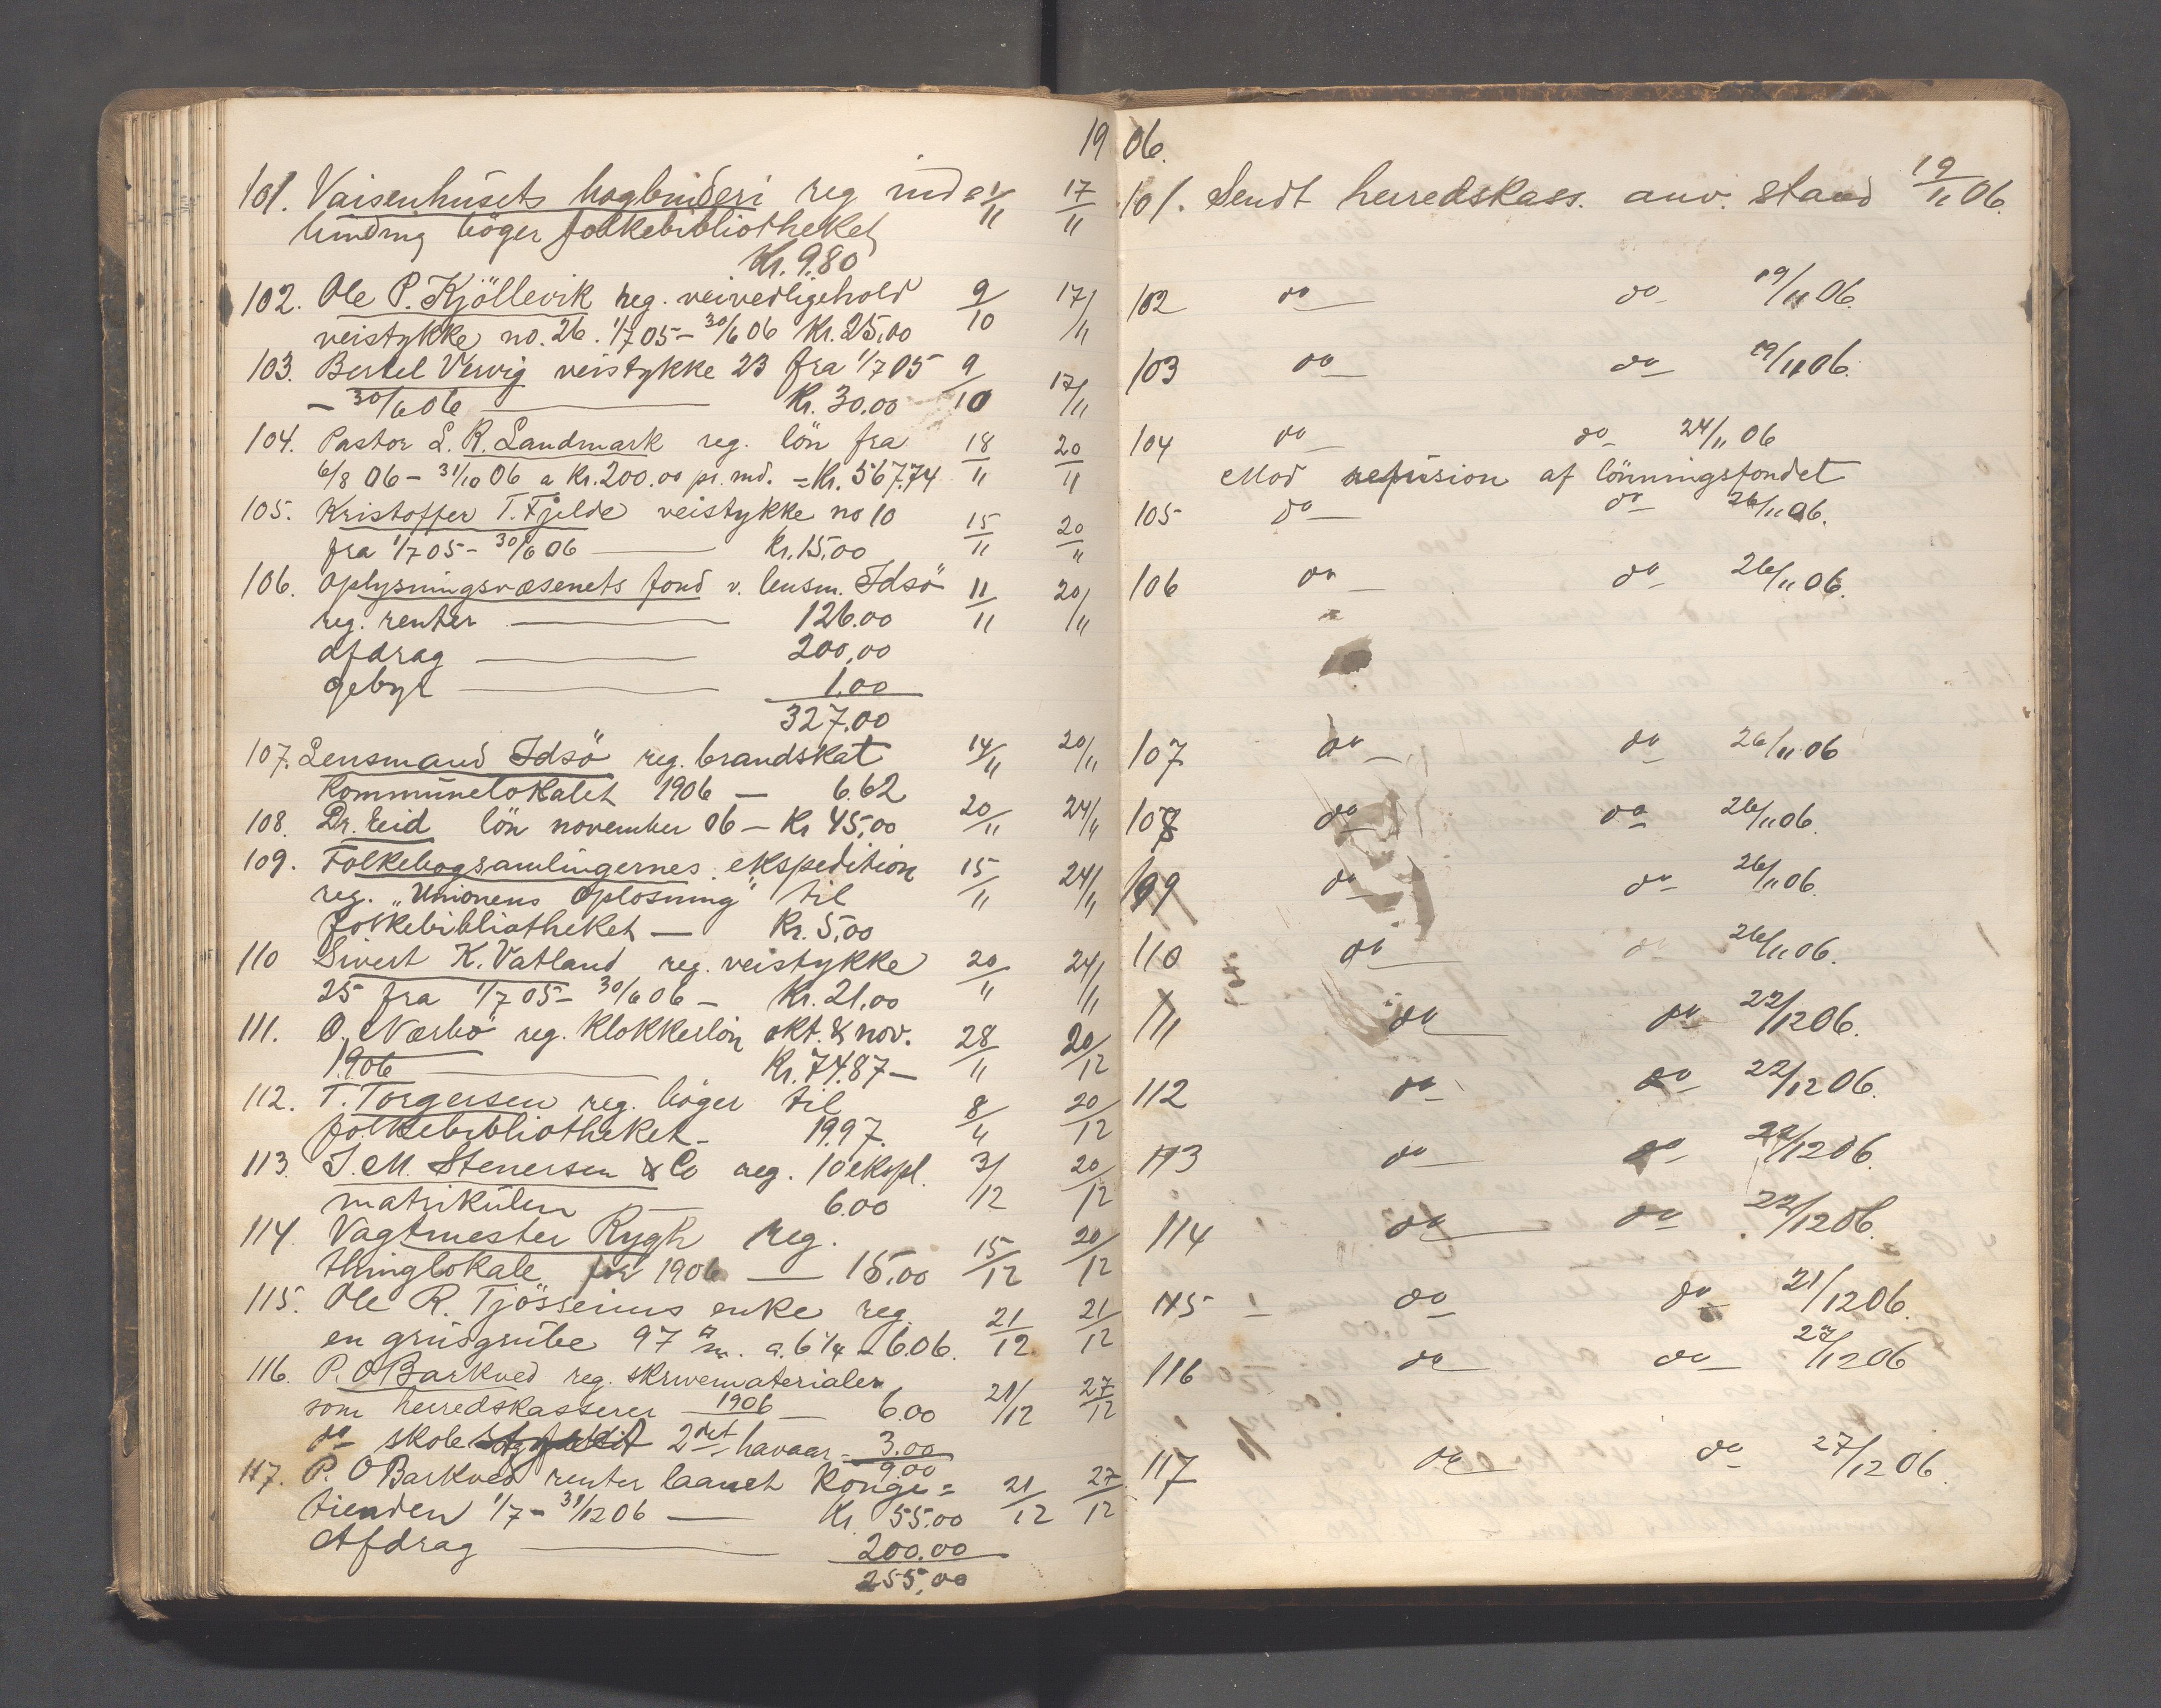 19 06.
101. Vaisenhusets bogbinderi reg ind= 1/11 17/11
binding böger folkebibliotheket
Kr. 9.80
102. Ole P. Kjöllevik reg. veivedligehold 9/10 17/11
veistykke no. 26. 1/7 05 - 30/6 06 Kr. 25,00
103. Bertel Vervig veistykke 23 fra 1/7 05 9/10 17/11
- 30/6 06 — Kr. 30.00
104. Pastor L. R. Landmark reg. lön fra 18/11 20/11
6/8 06 - 31/10 06 a Kr. 200.00 pr. md. = Kr. 567.74
105. Kristoffer T. Fjelde veistykke no 10 15/11 20/11
fra 1/7 05 - 30/6 06 — Kr. 15,00
106. Oplysningsvæsenets fond v. lensm. Idsö 11/11 20/11
reg. renter — 126.00
afdrag — 200,00
gebyr — 1.00
327,00
107. Lensmand Idsö reg. brandskat 14/11 20/11
Kommunelokalet 1906 — 6.62
108. Dr. Eid lön november 06 — Kr 45,00 20/11 24/11
109. Folkebogsamlingernes ekspedition 15/11 24/11
reg. „Unionens Oplösning" til
folkebibliotheket — Kr. 5,00
110 Sivert K. Vatland reg. veistykke 20/11 24/11
25 fra 1/7 05 - 30/6 06 — Kr. 21.00
111. O. Nærbö reg. Klokkerlön okt. & nov. 28/11 20/12
1906 — Kr. 74.87 —
112. T. Torgersen reg. böger til 8/11 20/12
folkebibliotheket - 19.97.
113. J. M. Stenersen & Co reg. 10 ekspl. 3/12 20/12
matrikulen — 6.00
114 Vagtmester Rygh reg. 15/12 20/12
thinglokale for 1906 — 15,00
115. Ole R. Tjösseims enke reg. 21/12 21/12
en grusgrube 97 m. a. 6 1/4 - 6.06.
116. P. O Barkved reg. skrivematerialer 21/12 27/12
som herredskasserer 1906 — 6.00
do skole 2det havaar - 3.00
9.00
117. P. O Barkved renter laanet Konge= 21/12 27/12
tienden 1/7 - 31/12 06 — Kr. 55.00
Afdrag — 200.00
255,00
101. Sendt herredskass. anv. stand 19/11 06.
102 do do 19/11 06.
103 do do 19/11 06.
104 do do 24/11 06
Mod refusion af lönningsfondet
105 do do 26/11 06.
106 do do 26/11 06.
107 do do 26/11 06
108 do do 26/11 06.
109 do do 26/11 06.
110 do do 26/11 06.
111 do do 22/12 06.
112 do do 22/12 06.
113 do do 22/12 06.
114 do do 22/12 06.
115 do do 21/12 06.
116 do do 27/12 06
117 do do 27/12 06.